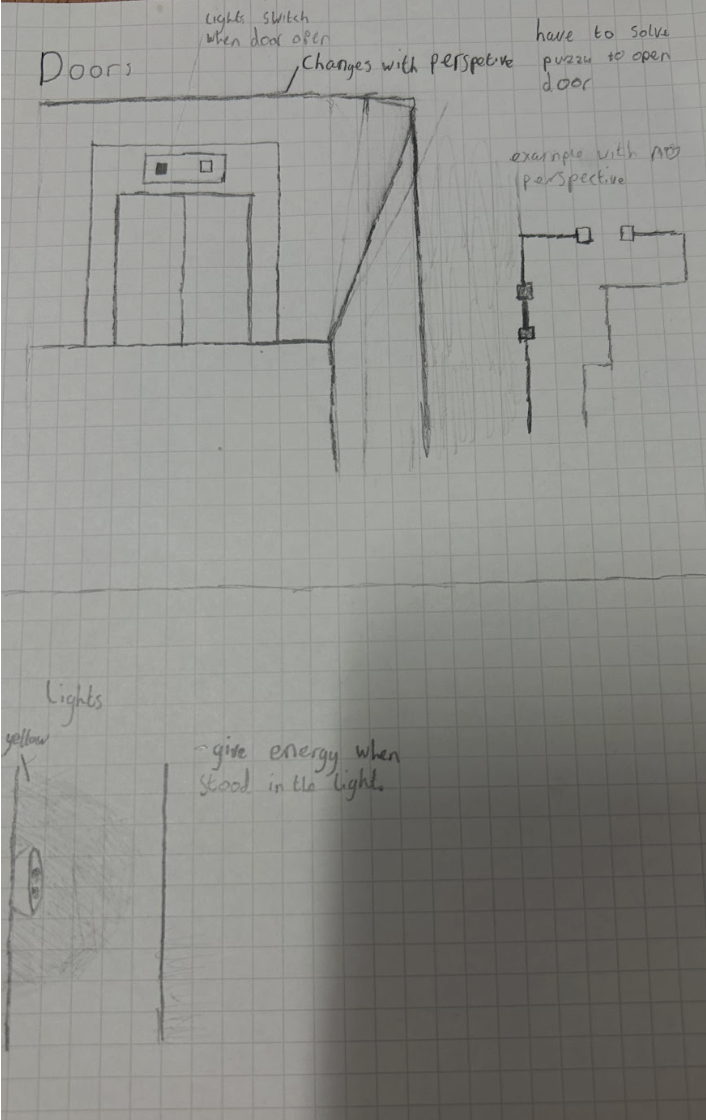 Lights switch
when door open
Doors
Changes with perspetive
have to solve
puzzle to open
door
example with no
perspective
Lights
yellow
- give energy when
stood in the light.